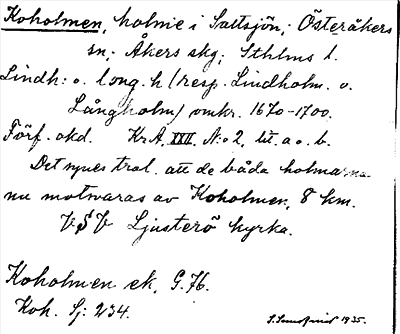 Koholmen, holme i Saltsjön,- Österåkers
sn,- Åkers skg; Sthlms l.
Lindh: o. long. h (resp. Lindholm. o.
Långholm) omkr. 1670-1700.
Förf. okd. KrA, XXII, N:o 2, lit. a o. b.
Det synes trol. att de båda holmarna
nu motsvaras av Koholmen, 8 km.
VSV Ljusterö kyrka.
Koholmen ek. G.76.
Koh. Sj: 234.
1935.